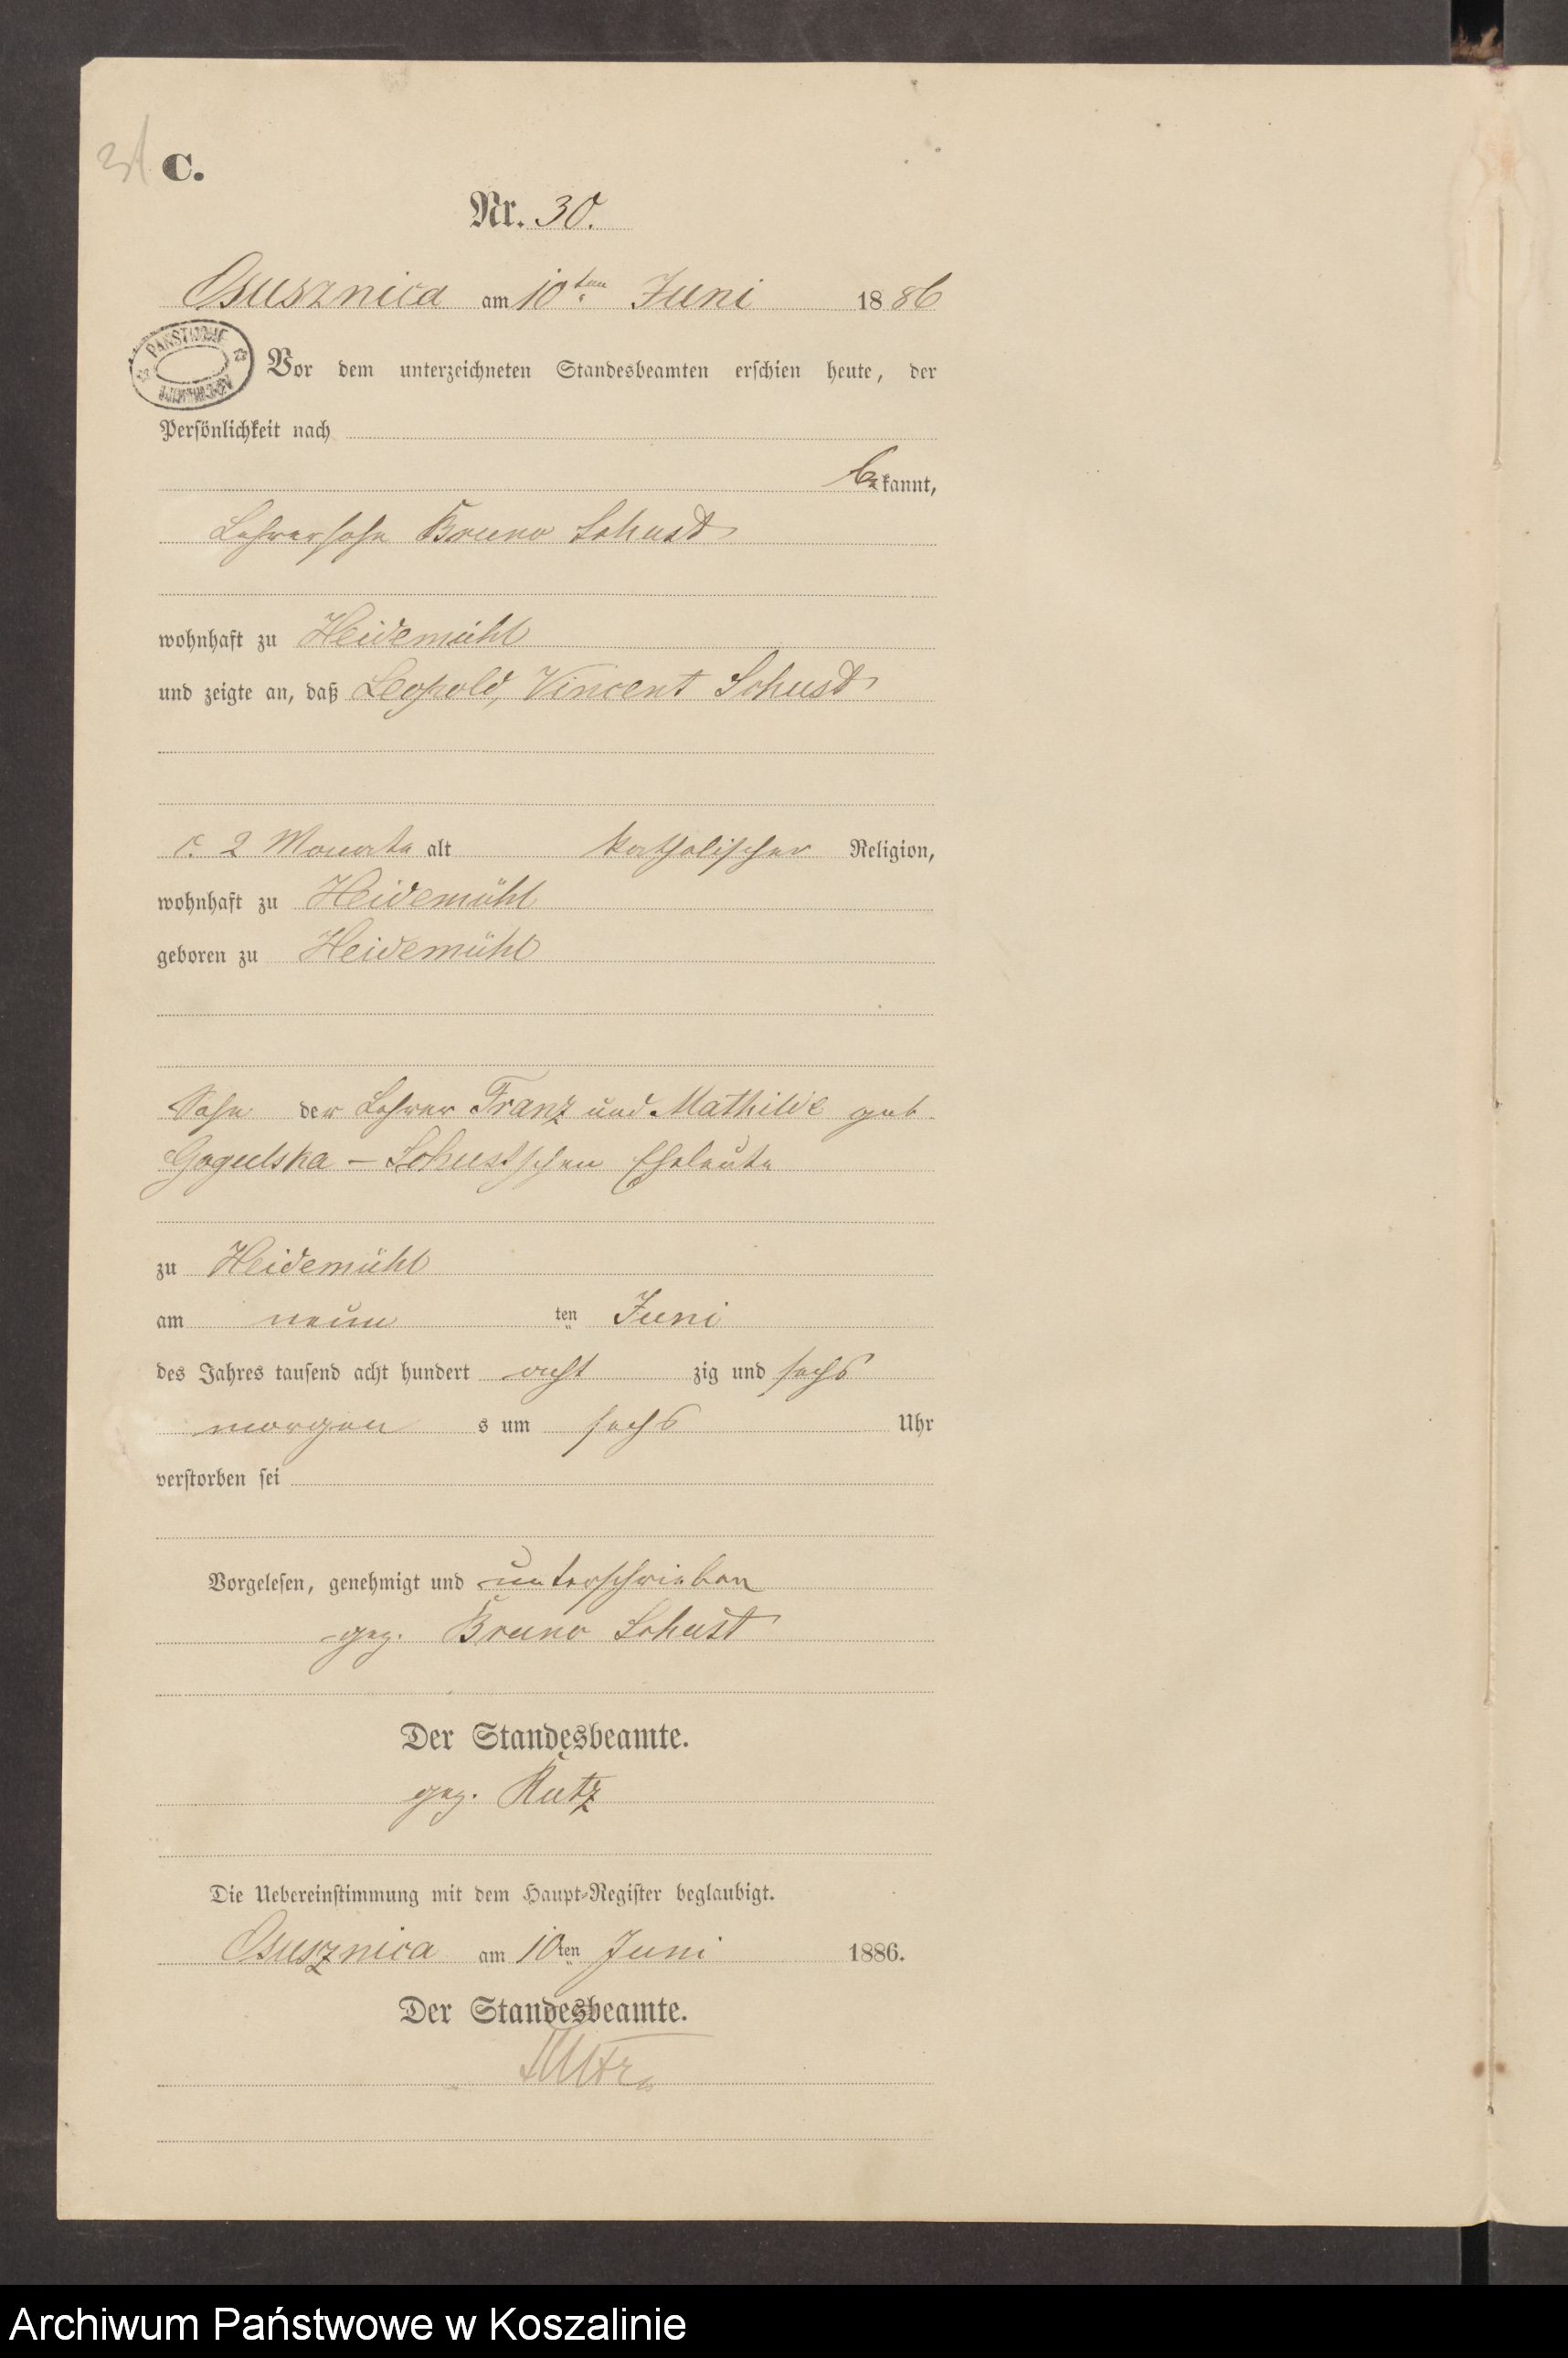 31 C.
Nr. 30.
Osusznica am 10ten Juni 1886
PAŃSTWOWE
Vor dem unterzeichneten Standesbeamten erschien heute, der
Persönlichkeit nach
bekannt,
Lehrersohn Bruno Schust
wohnhaft zu Heidemühl
und zeigte an, daß Leopold, Vincent Schust
c. 2 Monate alt katholischer Religion,
wohnhaft zu Heidemühl
geboren zu Heidemühl
Sohn der Lehrer Franz und Mathilde geb.
Gogulska – Schust'schen Eheleute
zu Heidemühl
am neun ten Juni
des Jahres tausend acht hundert acht zig und sechs
morgen s um sechs Uhr
verstorben sei
Vorgelesen, genehmigt und unterschrieben
gez. Bruno Schust
Der Standesbeamte.
gez. Rutz
Die Uebereinstimmung mit dem Haupt-Register beglaubigt.
Osusznica am 10ten Juni 1886.
Der Standesbeamte.
Rutz
Archiwum Państwowe w Koszalinie